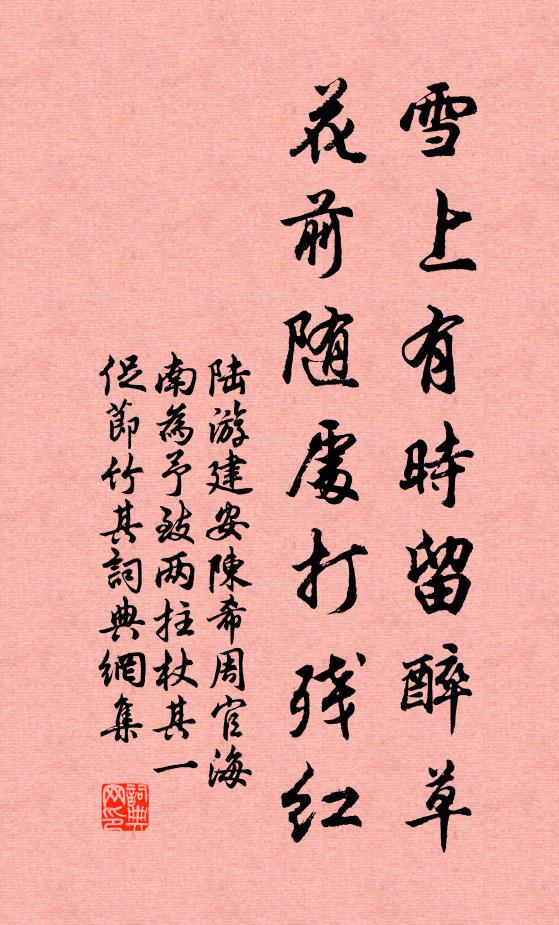 雪上有時留醉草
花前随處打残紅
陆游建安陳希周官海
南為予致两拄杖其一
促節竹其詞典網集
詞典网印